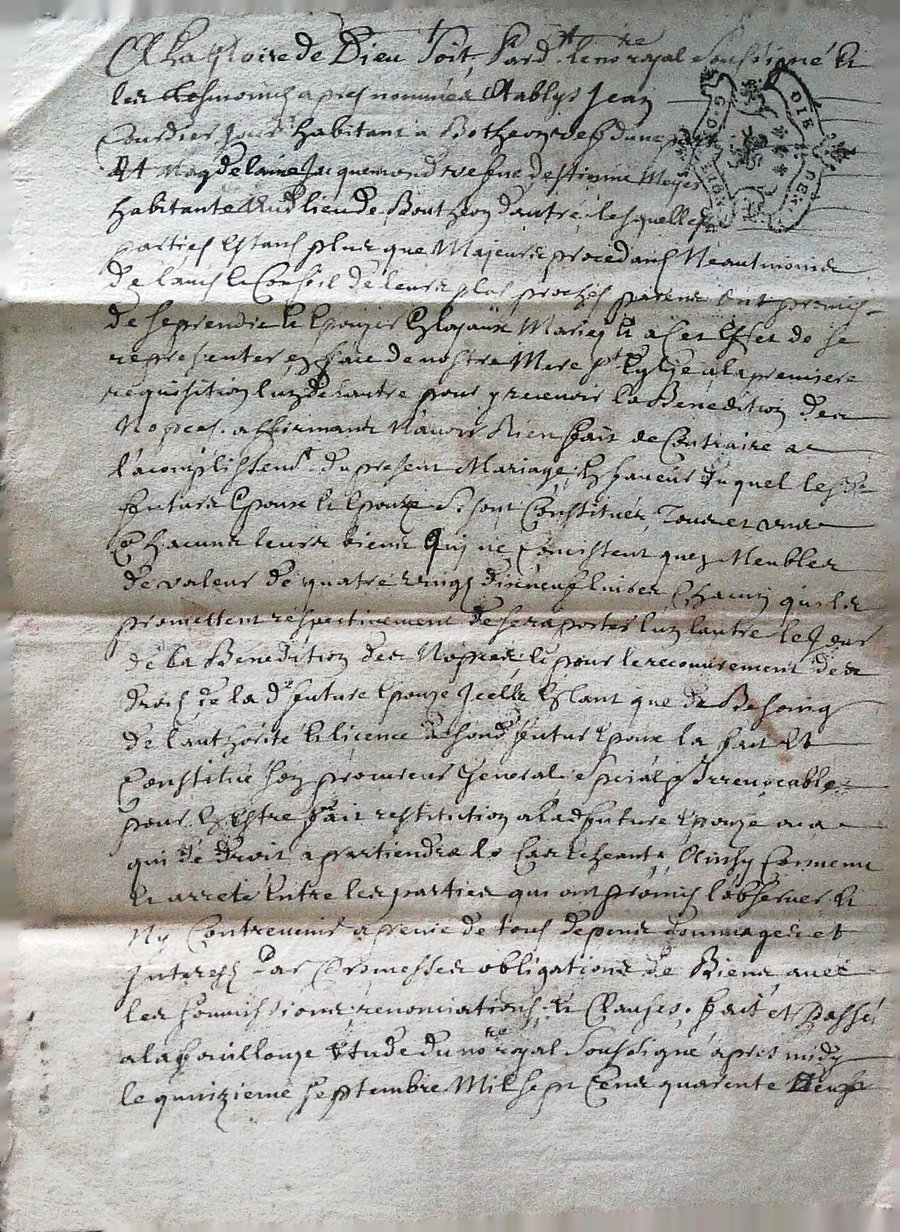 A la Gloire de Dieu soit Pard^t le no^re royal soussigné et
les tesmoins apres nommés establys Jean
Courdier jour^r habitant a Botheon vef d'une part
Et Magdelaine Jacquemond vefve d'estienne Moyer
habitante aud lieu de Boutheon d'autre lesquelles
parties estans plus que Majeurs procedans Neautmoins
de lauis le Conseil de leurs plus proches parens ont promis
de se prendre et Epouser En loyaux Mariez et a Cet Effet de se
representer en face de nostre Mere s^te Eglise a la premiere
requisition lun de lautre pour y recevoir la Benedition des
Nopces. affirmans N'avoir Rien fait de Contraire au
l'acomplissem^t du present Mariage, En faveur duquel lesd
futurs Epoux et Epouze se sont Constitués Tous et uns
Chacuns leurs biens qui ne Concistent quez Meubles
de valeur de quatre vingt dixneuf livres Chacun quils
promettent respectivement de se raporter lun lautre le Jour
de la Benedition des Nopces, et pour le recouvrement des
droits de la d^e future Epouze Jcelle Estant que de Besoing
de l'authorité et licence dud^t futur Epoux la fait Et
Constitue son procureur General Special et Irrevocable
pour En Estre fait restitution a lad future Epouze ou a
qui de droit apartiendra le Cas echeant, Ainsy Convenu
et arreté Entre les parties qui ont promis l'observer et
Ny Contrevenir a peine de tous depens dommages et
Interest Par Promesses obligations de Biens avec
les soumissions renonciations, et Clauses. fait et Passé
a la fouillouze Etude du no^re royal soussigné apres midy
le quinzieme septembre Mil sept Cens quarente Neuf